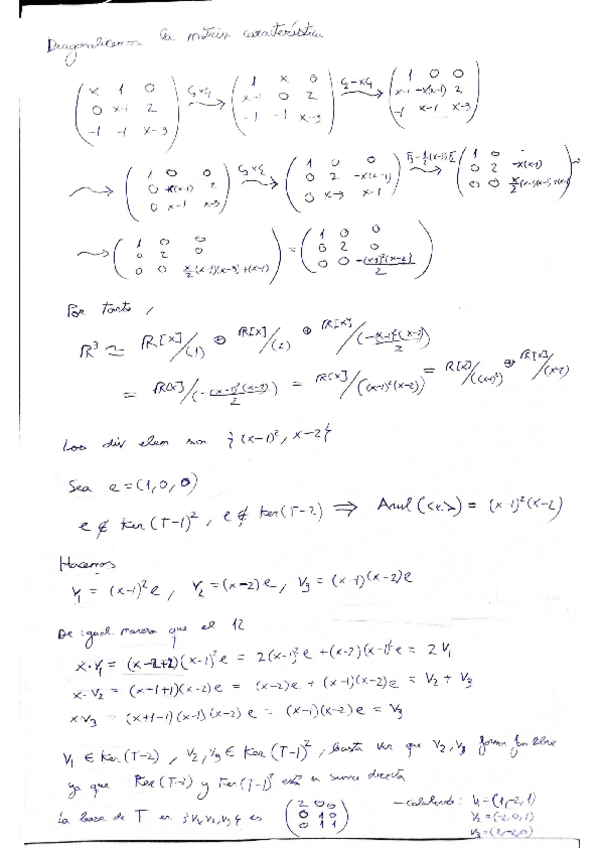 Diagonalicemos la matriz característica
( x 1 0 ; 0 x-1 2 ; -1 -1 x-3 ) ⇝ ( 1 x 0 ; x-1 0 2 ; -1 -1 x-3 ) ⇝ ( 1 0 0 ; x-1 -x(x-1) 2 ; -1 x-1 x-3 )
⇝ ( 1 0 0 ; 0 -x(x-1) 2 ; 0 x-1 x-3 ) ⇝ ( 1 0 0 ; 0 2 -x(x-1) ; 0 x-3 x-1 ) ⇝
⇝ ( 1 0 0 ; 0 2 0 ; 0 0 x/2 (x-1)(x-3)+(x-1) ) = ( 1 0 0 ; 0 2 0 ; 0 0 -(x-1)²(x-2)/2 )
Por tanto,
R³ ≃ R[x]/(1) ⊕ R[x]/(2) ⊕ R[x]/(-(x-1)²(x-2)/2)
= R[x]/(-(x-1)²(x-2)/2) = R[x]/((x-1)²(x-2)) = R[x]/((x-1)²) ⊕ R[x]/(x-2)
Los div elem son {(x-1)², x-2}
Sea e = (1, 0, 0)
e ∉ Ker(T-1)², e ∉ Ker(T-2) ⟹ Anul(<e>) = (x-1)²(x-2)
Hacemos
V₁ = (x-1)²e, V₂ = (x-2)e, V₃ = (x-1)(x-2)e
De igual manera que el 12
x·V₁ = (x-2+2)(x-1)²e = 2(x-1)²e + (x-2)(x-1)²e = 2V₁
x·V₂ = (x-1+1)(x-2)e = (x-2)e + (x-1)(x-2)e = V₂ + V₃
xV₃ = (x+1-1)(x-1)(x-2)e = (x-1)(x-2)e = V₃
V₁ ∈ Ker(T-2), V₂, V₃ ∈ Ker(T-1)², basta ver que V₂, V₃ forman base
ya que Ker(T-2) y Ker(T-1)² está en suma directa
La base de T en {V₁, V₂, V₃} es ( 2 0 0 ; 0 1 0 ; 0 1 1 ) - calculando: V₁ = (1, -2, 1)
V₂ = (-2, 0, 1)
V₃ = (2, -2, 0)